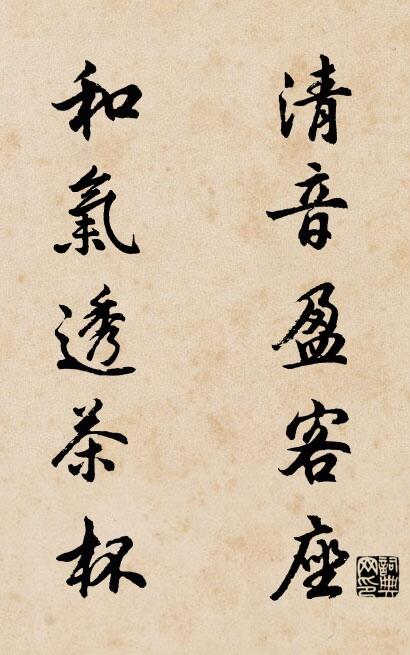 清音盈客座
和氣透茶杯
詞典网印